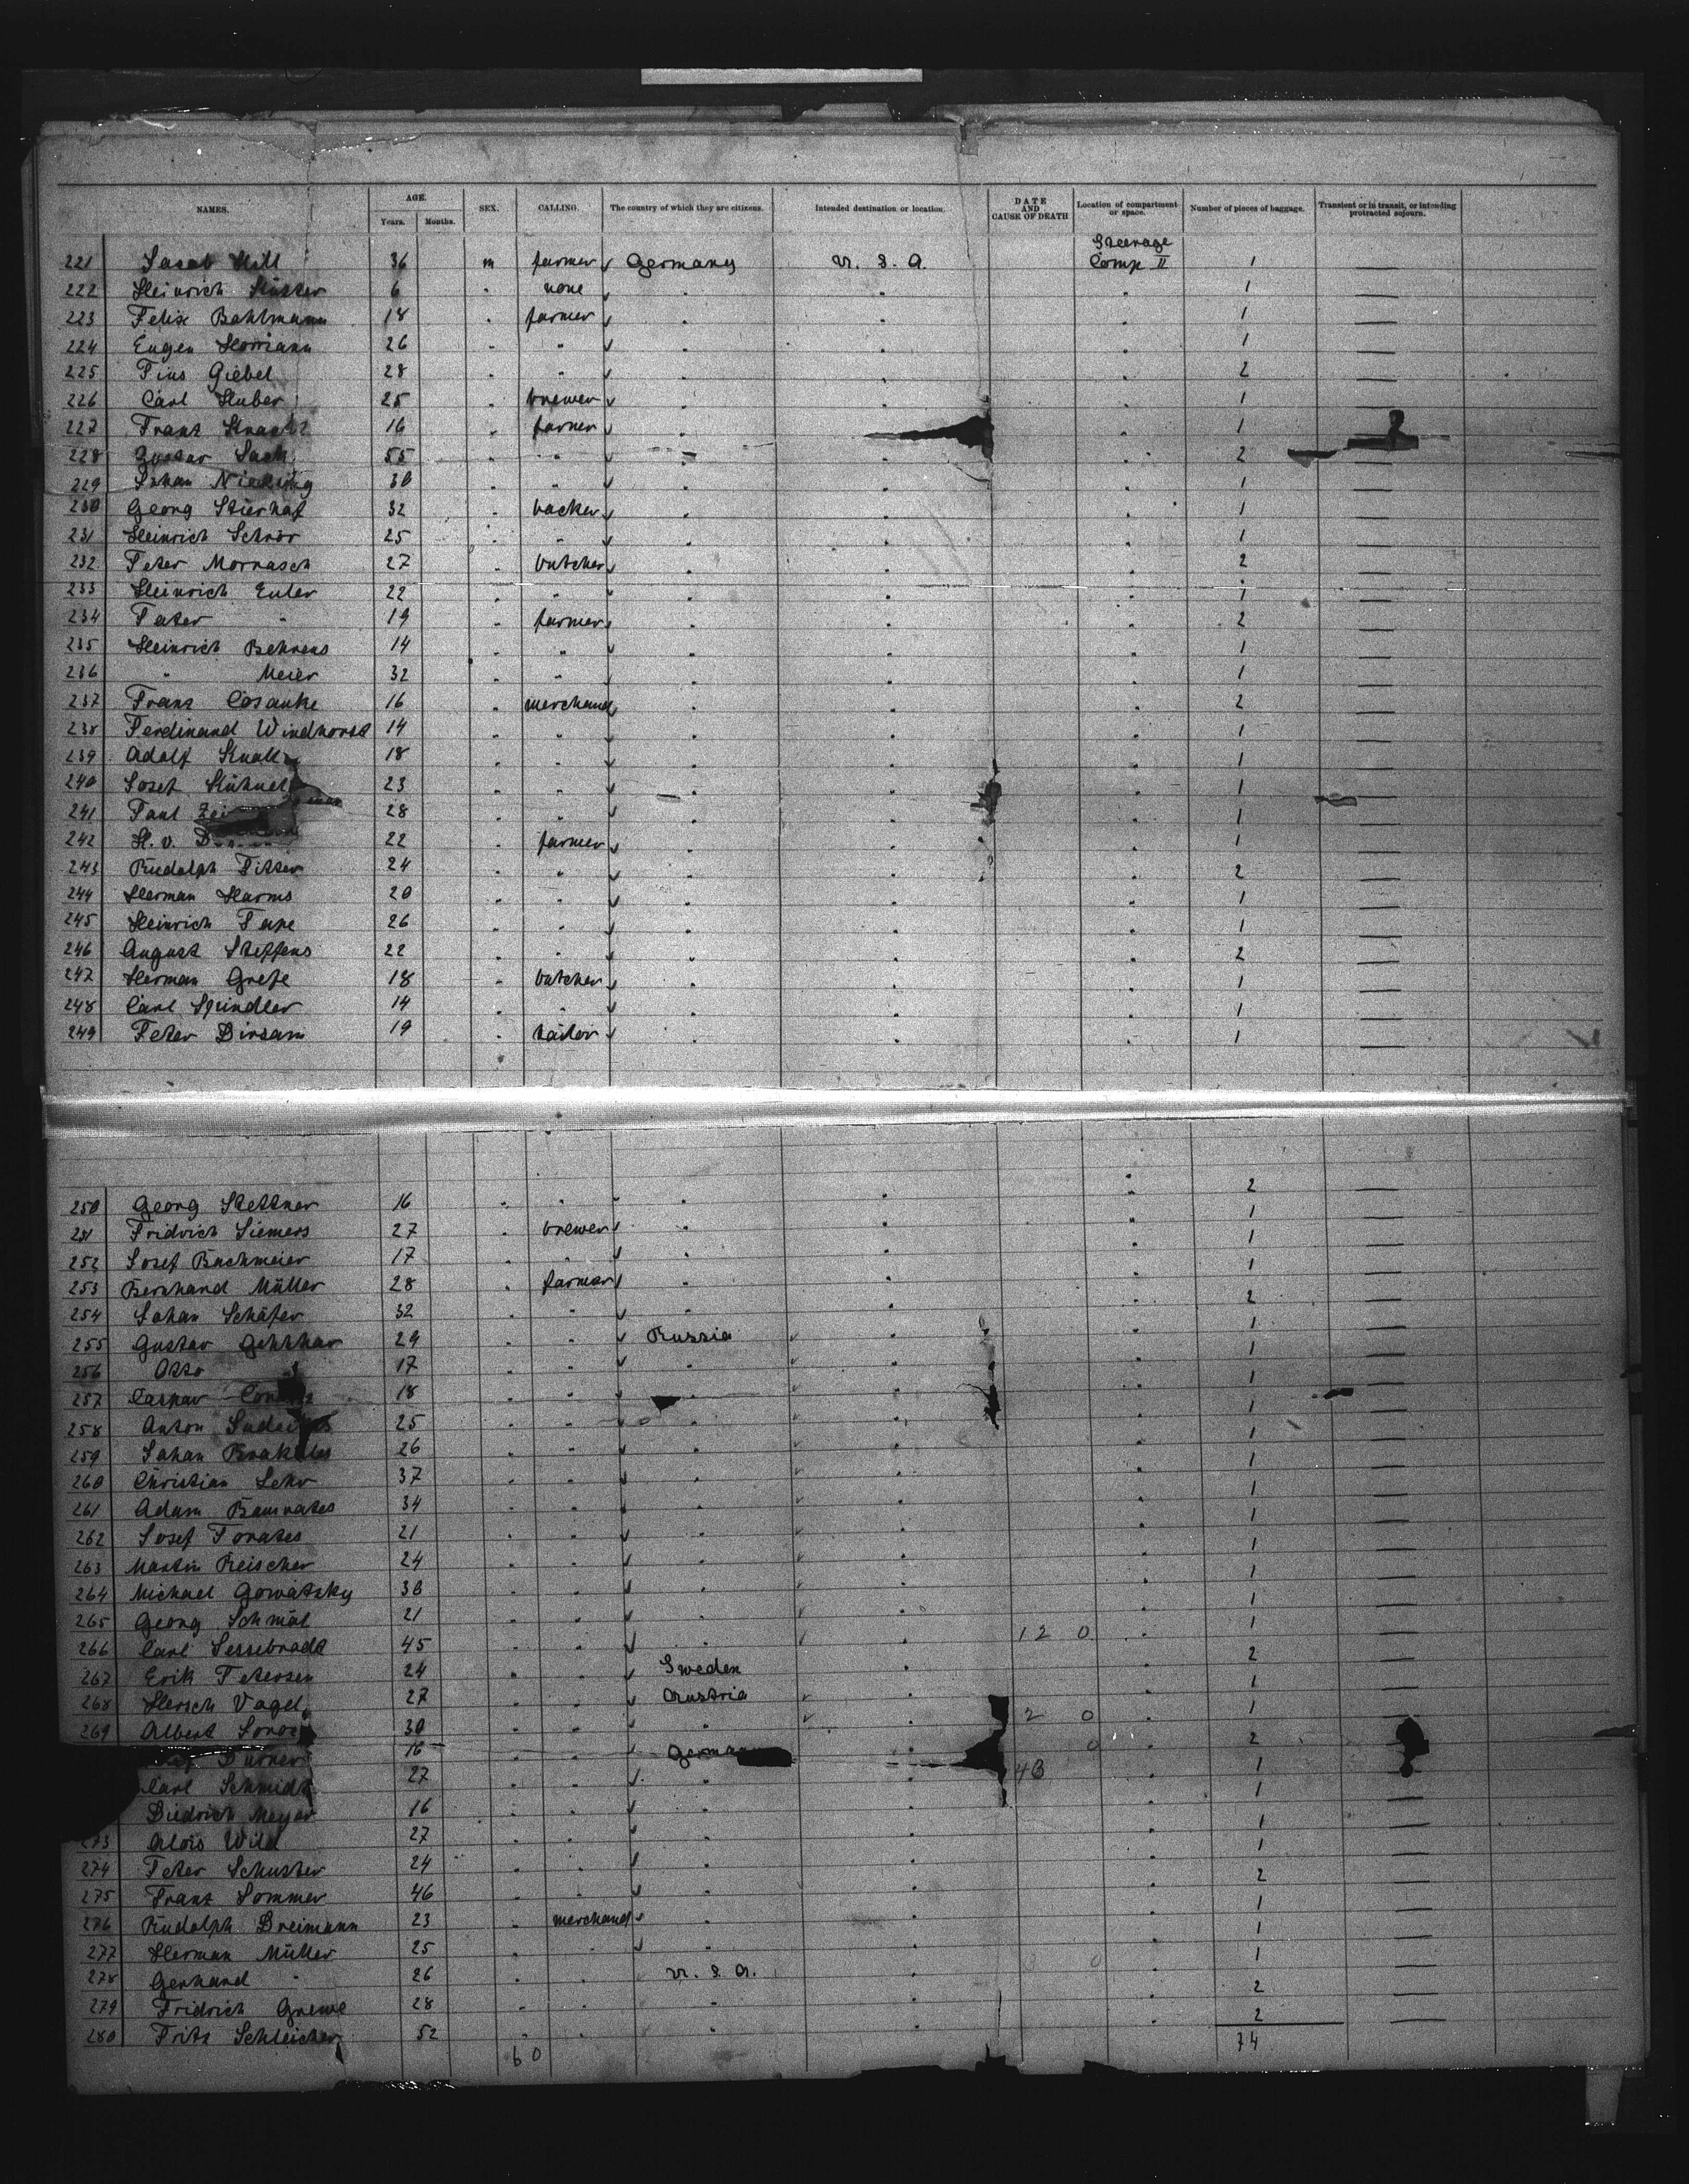 NAMES. AGE. Years. Months. SEX. CALLING. The country of which they are citizens. Intended destination or location. DATE AND CAUSE OF DEATH Location of compartment or space. Number of pieces of baggage. Transient or in transit, or intending protracted sojourn.
221 Jacob Hill 36 m farmer Germany U. S. A. Steerage Comp II 1
222 Heinrich Küster 6 " none " " " 1 —
223 Felix Bahlmann 18 " farmer " " " 1 —
224 Eugen 26 " " " " " 1 —
225 Pius Giebel 28 " " " " " 2 —
226 Carl Huber 25 " brewer " " " 1 —
227 Franz 16 " farmer " " 1
228 Gustav 55 " " " " " 2 —
229 Johan 30 " " " " " 1 —
230 Georg Stierhof 32 " backer " " " 1 —
231 Heinrich Schrör 25 " " " " " 1 —
232 Peter Mornasch 27 " butcher " " " 2 —
233 Heinrich Euler 22 " " " " " 1 —
234 Peter " 19 " farmer " " " 2 —
235 Heinrich Behrens 14 " " " " " 1 —
236 " Meier 32 " " " " " 1 —
237 Franz Cosanke 16 " merchand " " " 2 —
238 Ferdinand Windhorst 14 " " " " " 1 —
239 Adolf 18 " " " " " 1 —
240 Josef Kühnel 23 " " " " " 1
241 Paul 28 " " " " " 1 —
242 H. v. 22 " farmer " " " 1 —
243 Rudolph 24 " " " " " 2 —
244 Herman Harms 20 " " " " " 1 —
245 Heinrich Pape 26 " " " " " 1 —
246 August Steffens 22 " " " " " 2 —
247 Herman Grefe 18 " butcher " " " 1 —
248 Carl Spindler 14 " " " " " 1 —
249 Peter Dirsam 19 " tailor " " " 1 —
250 Georg Stettner 16 " " " " " 2 —
251 Fridrich Siemers 27 " brewer " " " 1 —
252 Josef Buchmeier 17 " " " " " 1 —
253 Bernhand Müller 28 " farmer " " " 1 —
254 Johan Schäfer 32 " " " " " 2 —
255 Gustav 29 " " Russia " " 1 —
256 Otto " 17 " " " " " 1 —
257 Caspar 18 " " " " " 1
258 Anton 25 " " " " " 1 —
259 Johan 26 " " " " " 1 —
260 Christian Lehr 37 " " " " " 1 —
261 Adam 34 " " " " " 1 —
262 Josef 21 " " " " " 1 —
263 Martin Reischer 24 " " " " " 1 —
264 Michael Gowatzky 30 " " " " " 1 —
265 Georg Schmal 21 " " " " " 1 —
266 Carl 45 " " " " 12 0 " 1 —
267 Erik Petersen 24 " " Sweden " " 2 —
268 Hersch Vogel 27 " " Austria " " 1 —
269 Albert 30 " " " " 2 0 " 1 —
16 " " " 0 " 2
Carl Schmidt 27 " " " " 43 " 1
Diedrich Meyer 16 " " " " " 1 —
273 Alois Wild 27 " " " " " 1 —
274 Peter Schuster 24 " " " " " 1 —
275 Franz Sommer 46 " " " " " 2 —
276 Rudolph Dreimann 23 " merchand " " " 1 —
277 Herman Müller 25 " " " " " 1 —
278 Gerhand " 26 " " U. S. A. " 0 " 1 —
279 Fridrich Grewe 28 " " " " " 2 —
280 Fritz Schleicher 52 " " " " " 2 —
60 74